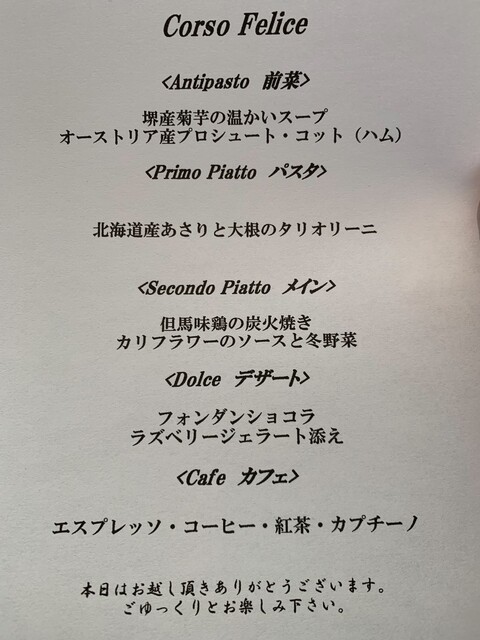 Corso Felice
<Antipasto 前菜>
堺産菊芋の温かいスープ
オーストリア産プロシュート・コット（ハム）
<Primo Piatto パスタ>
北海道産あさりと大根のタリオリーニ
<Secondo Piatto メイン>
但馬味鶏の炭火焼き
カリフラワーのソースと冬野菜
<Dolce デザート>
フォンダンショコラ
ラズベリージェラート添え
<Cafe カフェ>
エスプレッソ・コーヒー・紅茶・カプチーノ
本日はお越し頂きありがとうございます。
ごゆっくりとお楽しみ下さい。